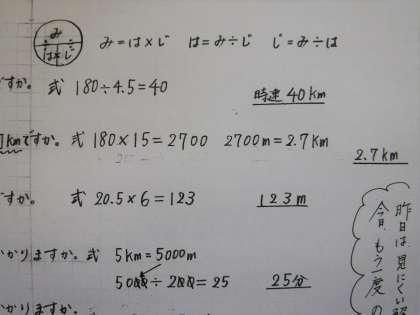 み
は×じ
み=は×じ は=み÷じ じ=み÷は
ですか。 式 180÷4.5=40
時速 40km
kmですか。 式 180×15=2700 2700m=2.7km
2.7km
ですか。 式 20.5×6=123
123m
かかりますか。式 5km=5000m
5000÷200=25
25分
かかりますか。
昨日は、見にくい
今日、もう一度の